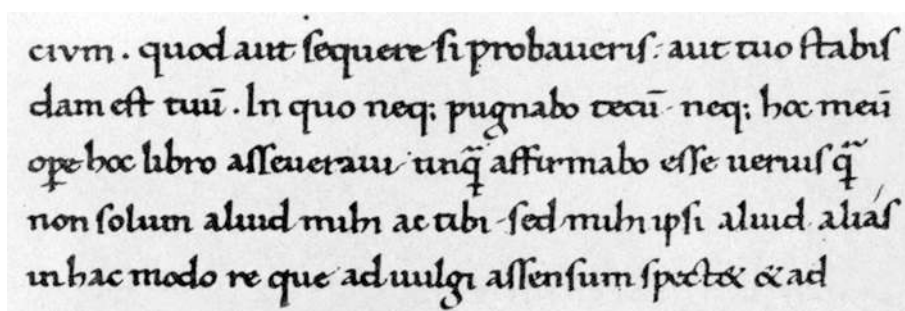 civm . quod aut sequere si probaueris: aut tuo stabis
dam est tuū . In quo neq; pugnabo tecū · neq; hoc meū
oꝑe hoc libro asseueraui · unq̃ affirmabo esse uerius q̃
non solum aliud mihi ac tibi · sed mihi ipsi aliud aliás
in hac modo re que ad uulgi assensum spectet & ad